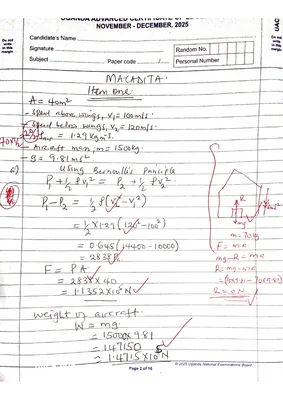 UGANDA ADVANCED CERTIFICATE OF
NOVEMBER - DECEMBER, 2025
Candidate's Name
Signature
Random No.
Subject
Paper code
Personal Number
Do not write in this margin
UAC
MACADITA
Item one
A = 40m²
- Speed above wings, V₁ = 100m/s
- Speed below wings, V₂ = 120m/s
= 1.29 kgm⁻³
- Aircraft mass, m = 1500kg
- g = 9.81 ms⁻²
a)
Using Bernoulli's Principle
P₁ + ½ρv₁² = P₂ + ½ρv₂²
P₁ - P₂ = ½ρ(v₂² - v₁²)
= ½ × 1.29 (120² - 100²)
= 0.645 (14400 - 10000)
= 2838Pa
F = PA
= 2838 × 40
= 1.1352 × 10⁵ N
weight of aircraft
W = mg
= 15000 × 9.81
= 147150
= 1.4715 × 10⁵ N
R
mg
m = 70kg
F = ma
mg - R = ma
R = mg - ma
R = 0N
Page 2 of 16
© 2025 Uganda National Examinations Board